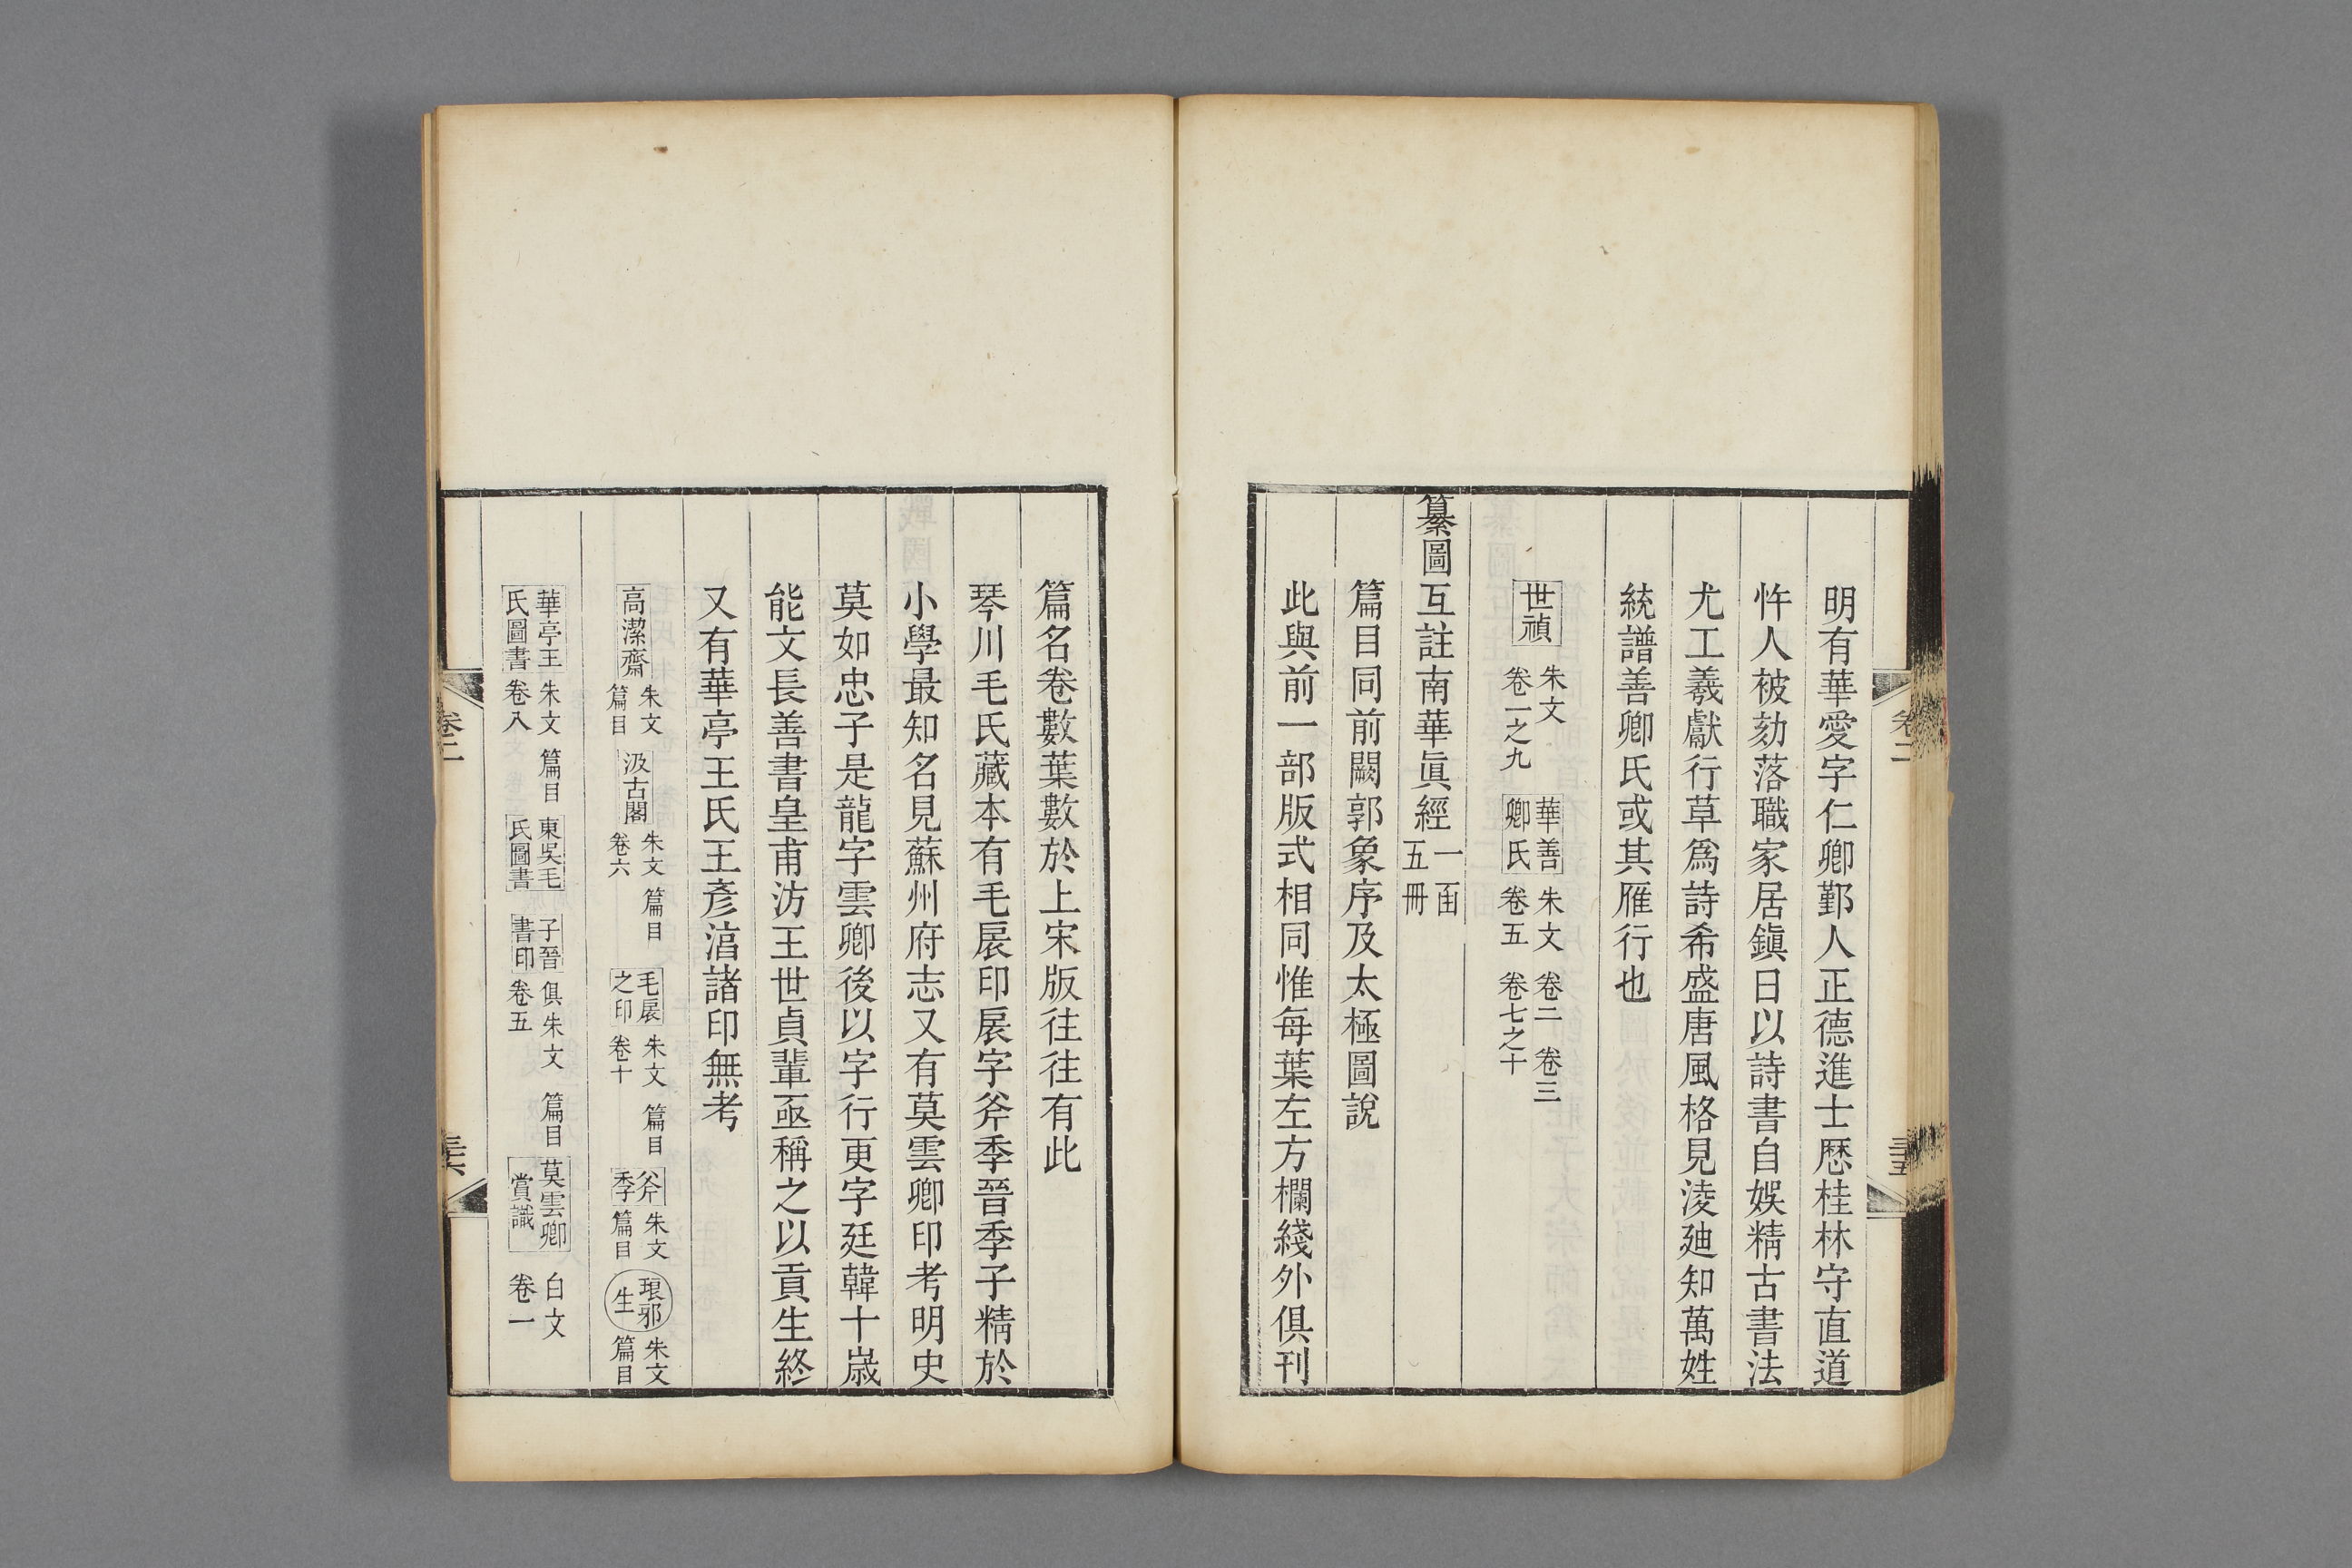 卷二
三五
明有華愛字仁卿鄞人正德進士歷桂林守直道
忤人被劾落職家居鎭日以詩書自娛精古書法
尤工羲獻行草爲詩希盛唐風格見淩廸知萬姓
統譜善卿氏或其雁行也
世禎 朱文 卷一之九 華善卿氏 朱文 卷二 卷三 卷五 卷七之十
纂圖互註南華眞經 一函 五冊
篇目同前闕郭象序及太極圖說
此與前一部版式相同惟每葉左方欄綫外俱刊
篇名卷數葉數於上宋版往往有此
琴川毛氏藏本有毛扆印扆字斧季晉季子精於
小學最知名見蘇州府志又有莫雲卿印考明史
莫如忠子是龍字雲卿後以字行更字廷韓十歲
能文長善書皇甫汸王世貞輩亟稱之以貢生終
又有華亭王氏王彥湻諸印無考
高潔齋 朱文 篇目 汲古閣 朱文 卷六 篇目 毛扆之印 朱文 卷十 篇目 斧季 朱文 篇目 琅邪生 朱文 篇目
華亭王氏圖書 朱文 卷八 篇目 東吳毛氏圖書 子晉書印 俱朱文 卷五 篇目 莫雲卿賞識 白文 卷一
卷二
三六